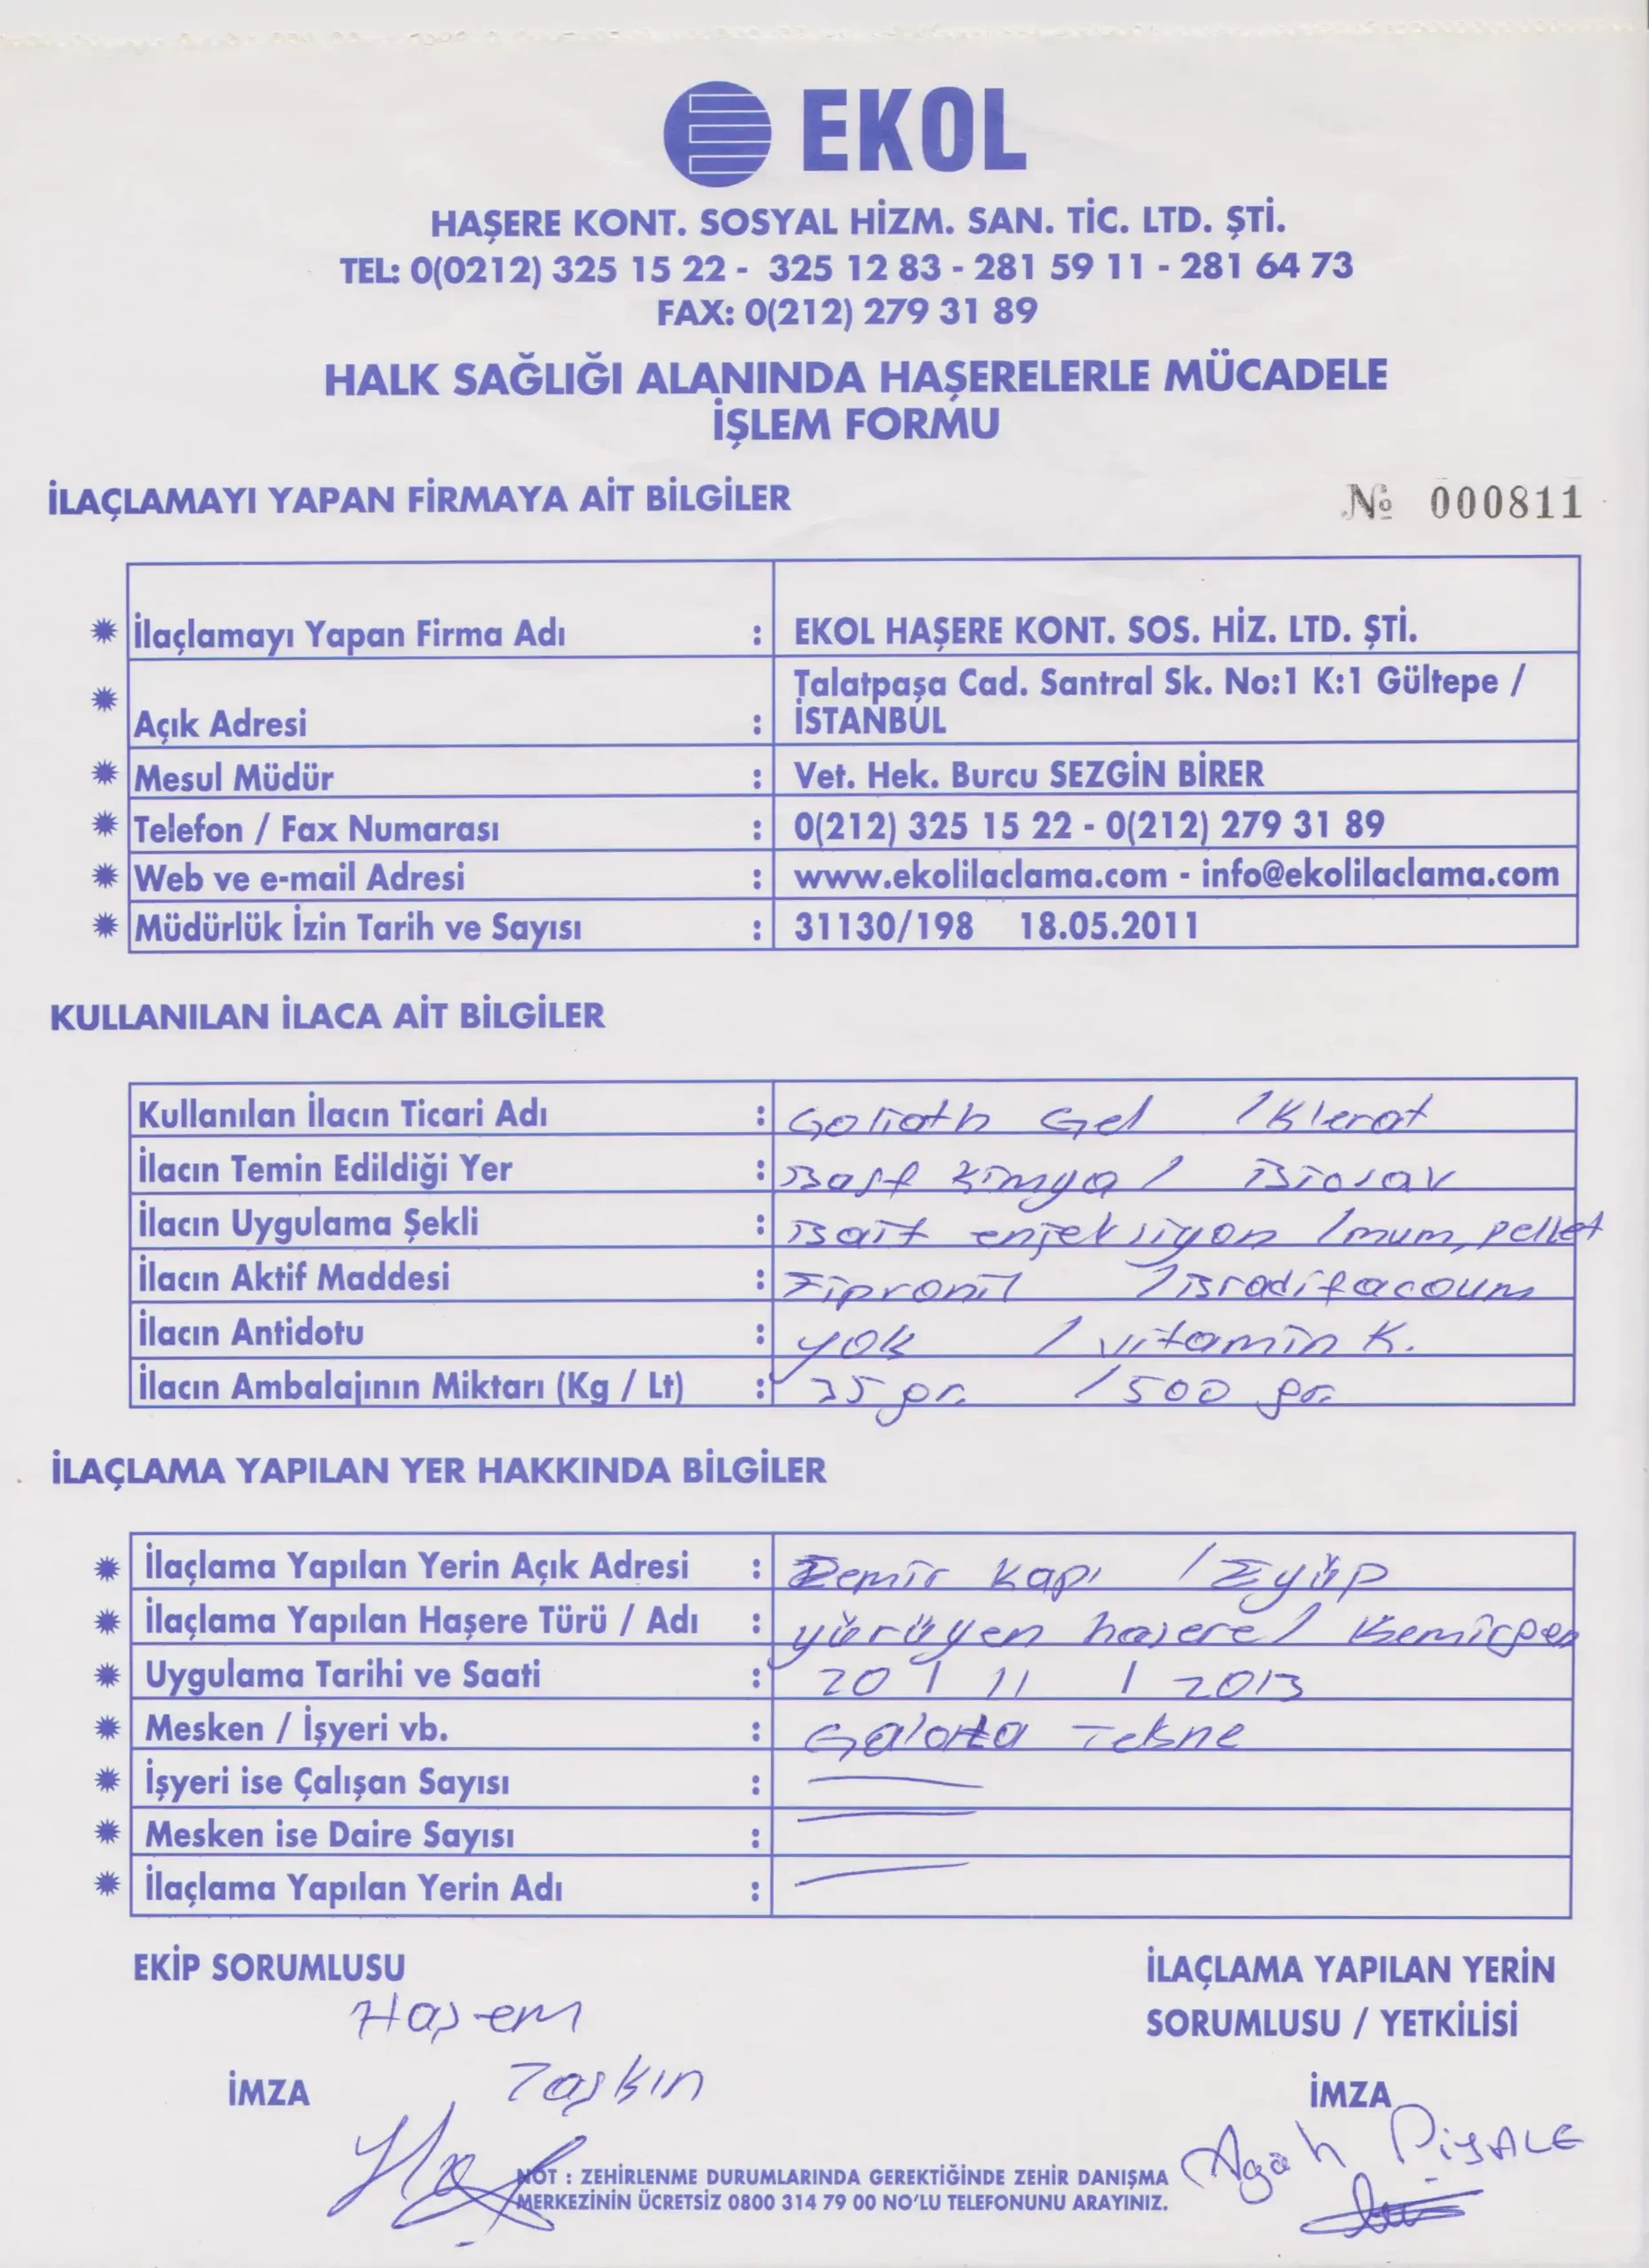 EKOL
HAŞERE KONT. SOSYAL HİZM. SAN. TİC. LTD. ŞTİ.
TEL: 0(0212) 325 15 22 - 325 12 83 - 281 59 11 - 281 64 73
FAX: 0(212) 279 31 89
HALK SAĞLIĞI ALANINDA HAŞERELERLE MÜCADELE
İŞLEM FORMU
İLAÇLAMAYI YAPAN FİRMAYA AİT BİLGİLER № 000811
İlaçlamayı Yapan Firma Adı : EKOL HAŞERE KONT. SOS. HİZ. LTD. ŞTİ.
Açık Adresi : Talatpaşa Cad. Santral Sk. No:1 K:1 Gültepe /
İSTANBUL
Mesul Müdür : Vet. Hek. Burcu SEZGİN BİRER
Telefon / Fax Numarası : 0(212) 325 15 22 - 0(212) 279 31 89
Web ve e-mail Adresi : www.ekolilaclama.com - info@ekolilaclama.com
Müdürlük İzin Tarih ve Sayısı : 31130/198 18.05.2011
KULLANILAN İLACA AİT BİLGİLER
Kullanılan İlacın Ticari Adı : Goliath Gel / Klerat
İlacın Temin Edildiği Yer : Basf Kimya / Biosav
İlacın Uygulama Şekli : Bait enjeksiyon / mum, pellet
İlacın Aktif Maddesi : Fipronil / Bradifacoum
İlacın Antidotu : yok / vitamin K.
İlacın Ambalajının Miktarı (Kg / Lt) : 35 gr. / 500 gr.
İLAÇLAMA YAPILAN YER HAKKINDA BİLGİLER
İlaçlama Yapılan Yerin Açık Adresi : Demir Kapı / Eyüp
İlaçlama Yapılan Haşere Türü / Adı : yürüyen haşere / Kemirgen
Uygulama Tarihi ve Saati : 20 / 11 / 2013
Mesken / İşyeri vb. : Galata Tekne
İşyeri ise Çalışan Sayısı :
Mesken ise Daire Sayısı :
İlaçlama Yapılan Yerin Adı :
EKİP SORUMLUSU İLAÇLAMA YAPILAN YERİN
Haşem SORUMLUSU / YETKİLİSİ
İMZA Taşkın İMZA
Agah PİYALE
NOT : ZEHİRLENME DURUMLARINDA GEREKTİĞİNDE ZEHİR DANIŞMA
MERKEZİNİN ÜCRETSİZ 0800 314 79 00 NO'LU TELEFONUNU ARAYINIZ.